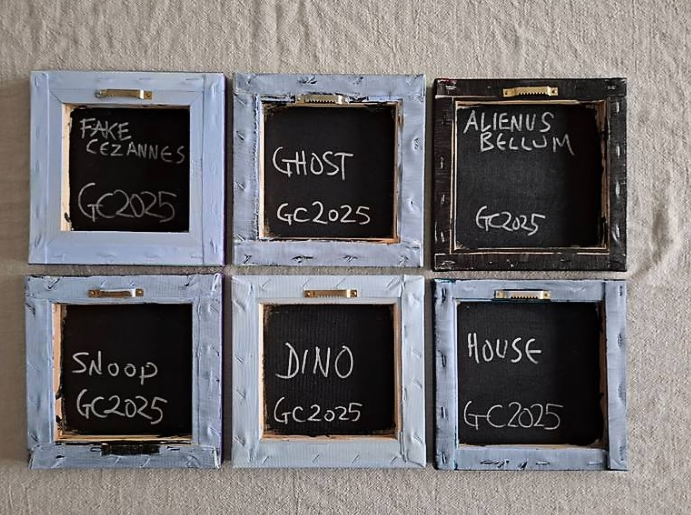 FAKE
CEZANNES
GC2025
GHOST
GC2025
ALIENUS
BELLUM
GC2025
SNOOP
GC2025
DINO
GC2025
HOUSE
GC2025